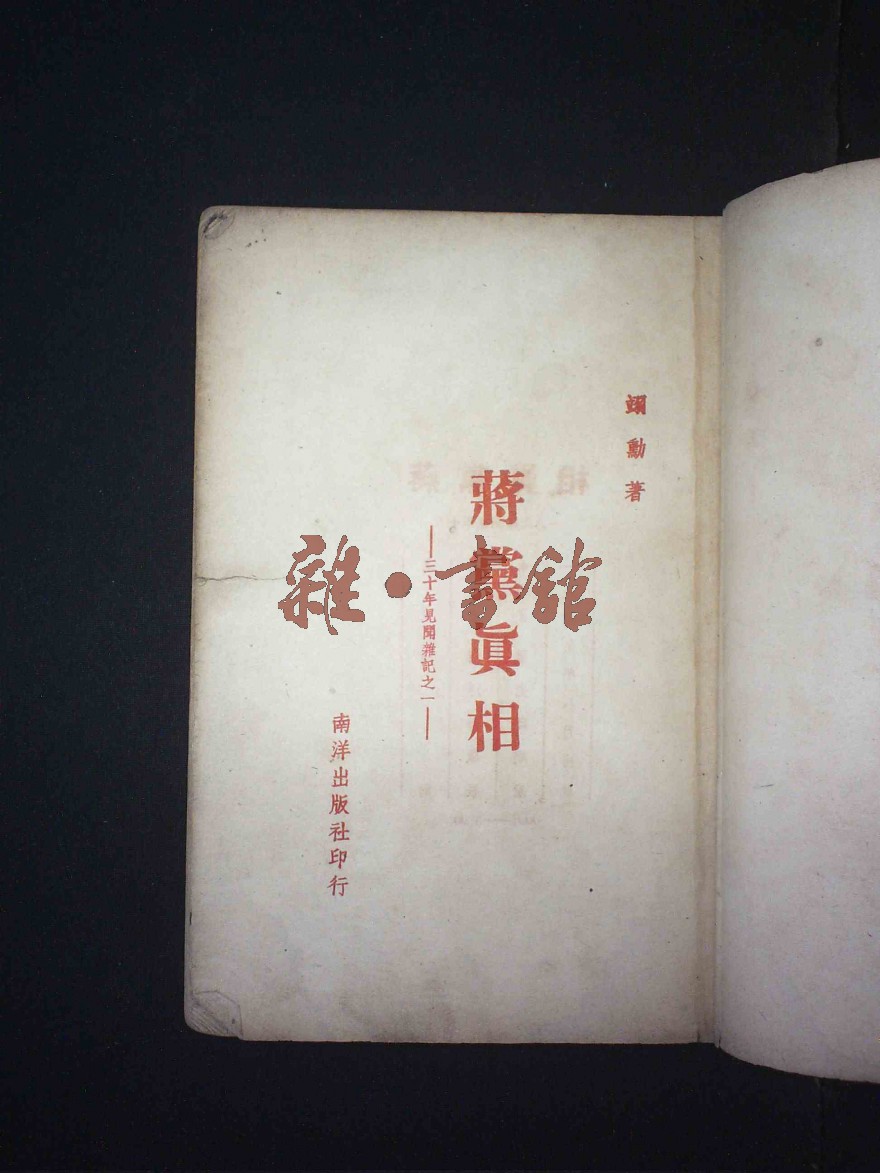 翊勳著
蔣黨眞相
——三十年見聞雜記之一——
南洋出版社印行
雜·書館